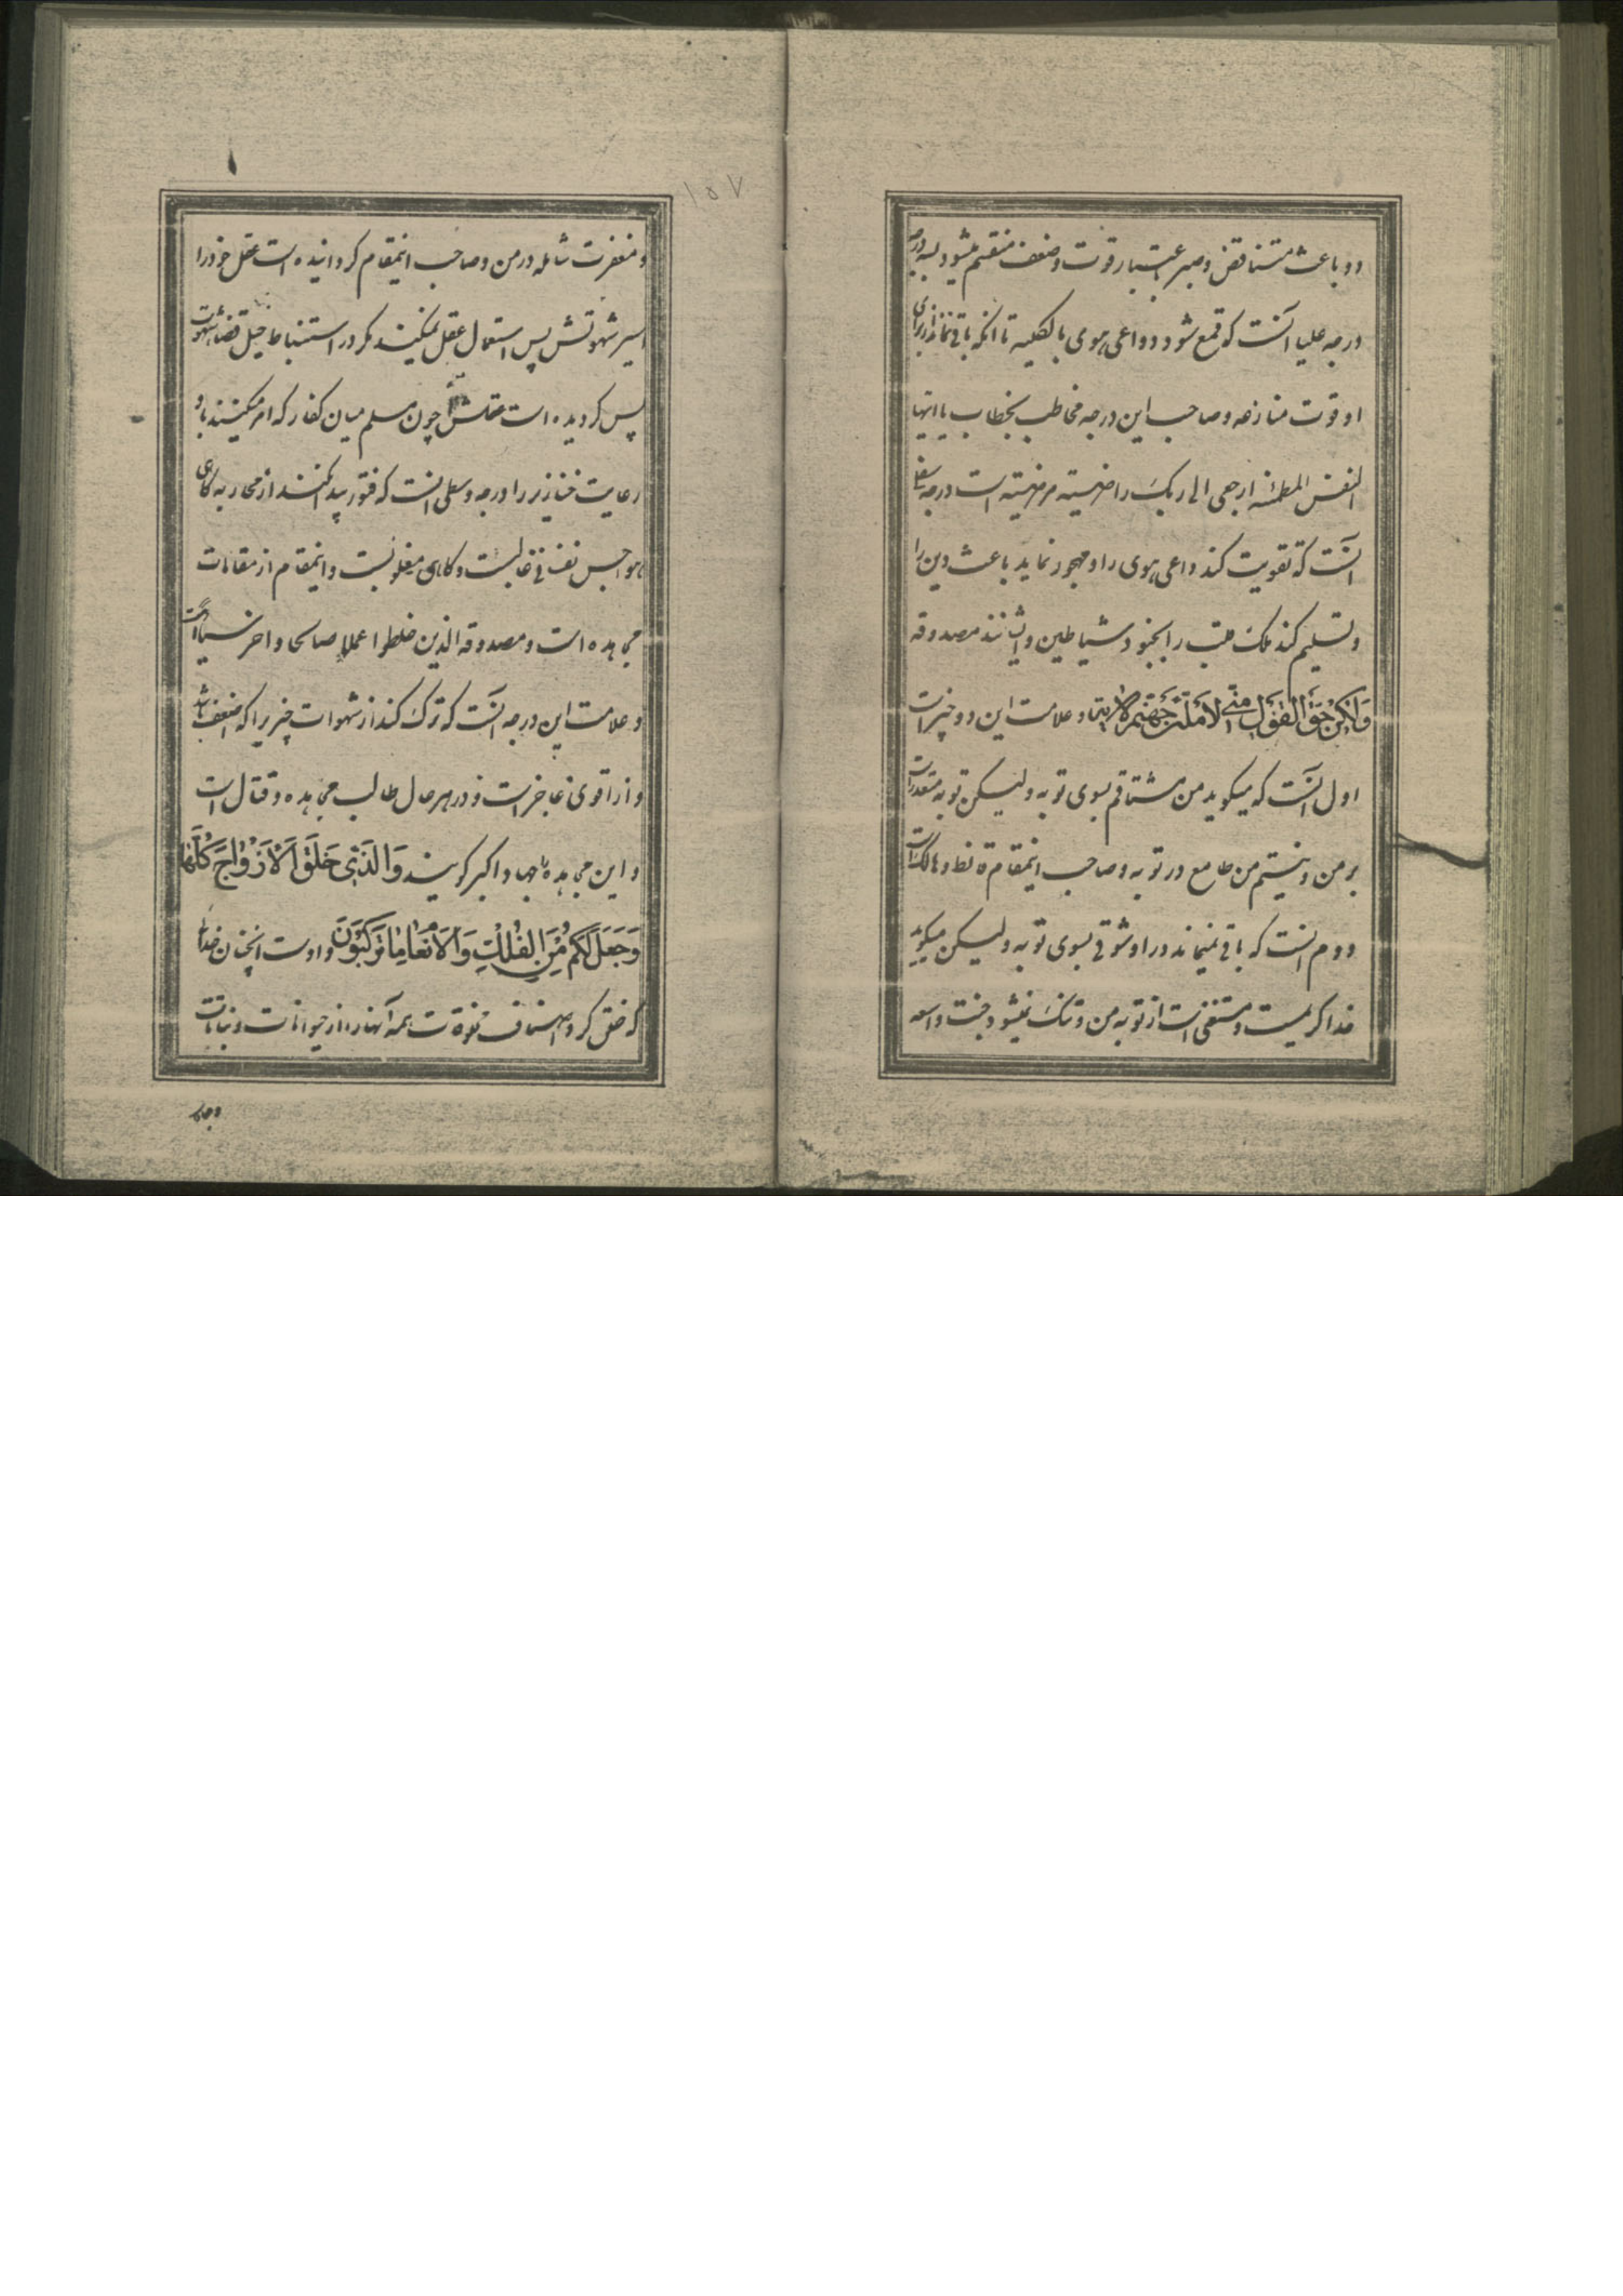 دو باعث متناقض و صبر باعتبار قوت و ضعف منقسم میشود بسه درجه
درجه علیا آنست که قمع شود دواعی هوی بالکلیه تا انکه باقی نماند از برای
او قوت منازعه و صاحب این درجه مخاطب بخطاب یا ایتها
النفس المطمئنه ارجعی الی ربک راضیته مرضیته است درجه سفلی
آنست که تقویت کند داعی هوی را و مهجور نماید باعث دین را
و تسلیم کند ملک قلب را بجنود شیاطین و ایشانند مصدوقه
وَلٰکِنْ حَقَّ الْقَوْلُ مِنّی لَاَمْلَئَنَّ جَهَنَّمَ و علامت این دو چیز است
اول آنست که میکوید من مشتاقم بسوی توبه و لیکن توبه متعذر است
بر من و نیستم من طامع در توبه و صاحب اینمقام قانط و هالک است
دوم انست که باقی نمیماند در او شوقی بسوی توبه و لیکن میکوید
خدا کریمست و مستغنی است از توبه من و تنک نمیشود جنت واسعه
۱۵۷
و مغفرت شامله در من و صاحب اینمقام کردانیده است عقل خود را
اسیر شهوتش پس استعمال عقل نمیکند مکر در استنباط حیل قضاء شهوت
پس کردیده است عقلش چون مسلم میان کفار که امر میکنند باو
رعایت خنازیر را درجه وسطی انست که فتور پیدا نکند از محاربه کاهی
هواجس نفسانی غالبست و کاهی مغلوبست و اینمقام از مقامات
مجاهده است و مصدوقه الذین خلطوا عملا صالحا و اخر سیئا است
و علامت این درجه آنست که ترک کند از شهوات چیزیرا که اضعف باشد
و از اقوی عاجز است و در هر حال طالب مجاهده و قتال است
و این مجاهده را جهاد اکبر کویند وَالَّذی خَلَقَ الْاَزْوٰاجَ کُلَّهٰا
وَجَعَلَ لَکُمْ مِنَ الْفُلْکِ وَالْاَنْعٰامِ مٰا تَرْکَبُونَ و اوست انچنان خدائی
که خلق کرد اصناف مخلوقات همه آنها را از حیوانات و نباتات